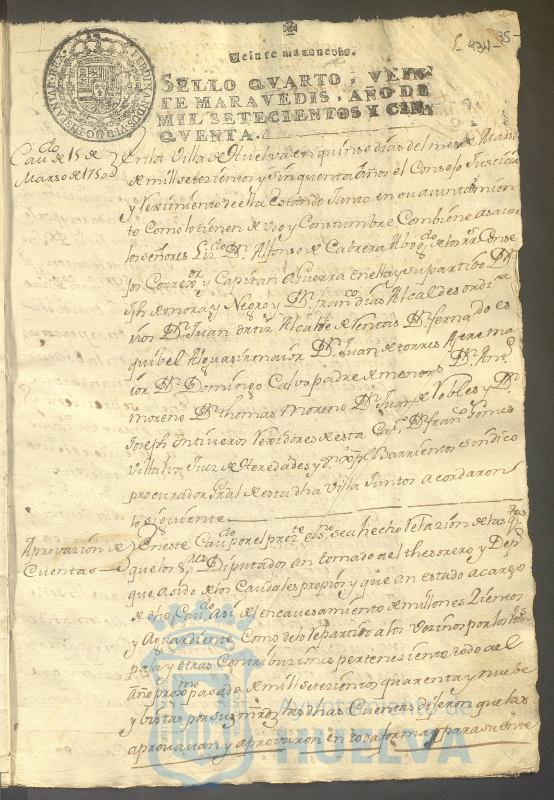 Veinte maravedis.
SELLO QVARTO, VEIN-
TE MARAVEDIS, AÑO DE
MIL SETECIENTOS Y CIN-
QVENTA.
Cau.do de 15 de
Marzo de 1750
En la Villa de Huelva en quinse dias del mes de Marso
de mill setezientos y sinquenta años el Consejo Justicia
y reximiento de ella estando Junto en su auntamien
to como lo tienen de uso y Constumbre Combiene a saver
los señores Liz.do D.n Alfonso de Cabrera Abog.do de los rr.s Conse
jos Correx.or y Capitan a Guerra en ella y su partido D.n
Jph de mora y Negro y D.n Fran.co dias Alcaldes ordina
rios D.n Juan ortiz Alcalde de Ventas D.n fernando es
quibel Alguasil maior D.n Juan de torres
ior D.n Domingo Calvo padre de menores D.n Ant.o
moreno D.n thomas Moreno D.n Juan de Robles y D.n
Joseph Intiveros rexidores de esta D.n fran.co Gomes
Villalva Juez de Heredades y Barrientos sindico
procurador Gral de esta dha Villa Juntos acordaron
lo siguiente
Aprovazion de
Cuentas
En este Cau.do por el prez.te ess.no se a hecho relazion de las q.tas
que los S.res Diputados an tomado al thesorero y Dep.o
que a sido de los Caudales propios y que an estado a cargo
de dho Cau.do asi del encavesamiento de millones Zientos
y Aguardiente Como de lo repartido a los vezinos por los
paja y otras Contribuziones perteneziente todo al
año prox.mo pasado de mill setezientos quarenta y nuebe
y vistas por sus mrds las dhas Cuentas dijeron que las
aprovavan y aprovaron en toda forma y para su
Ayuntamiento de
HUELVA